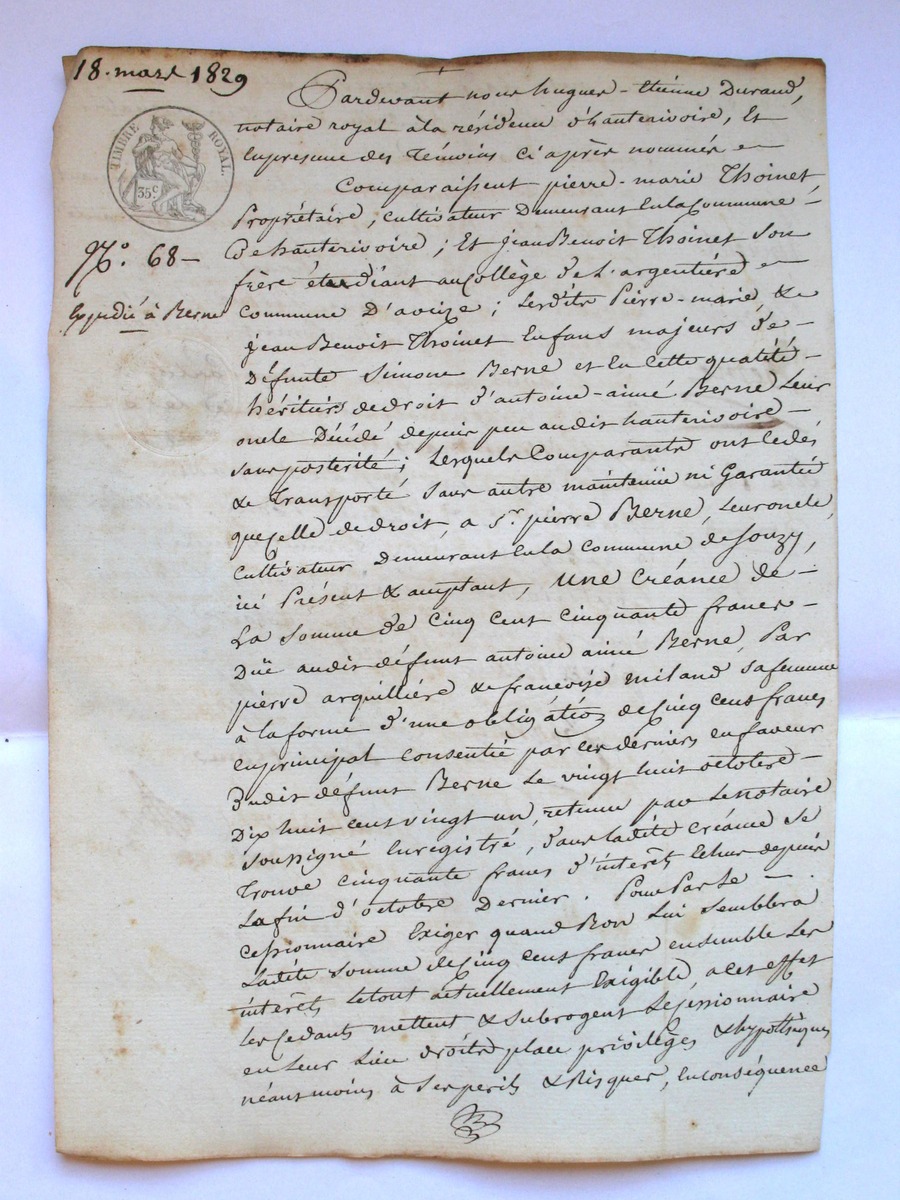 18. mars 1829
TIMBRE ROYAL.
35c
No. 68 —
Expédié à Berne
Pardevant nous hugues - étienne Durand,
notaire royal à la résidence d'hauterivoire, Et
En presence des Témoins ci après nommés —
Comparaissent pierre-marie Thoinet
Propriétaire, cultivateur Demeurant En la Commune —
de hauterivoire ; Et jean Benoit Thoinet son
frère étudiant au Collège de L'argentière —
Commune D'aveize ; Lesdits Pierre-marie, &
jean Benoit Thoinet Enfans majeurs de —
Défunte Simone Berne et En Cette qualité —
héritiers de droit d'antoine-aimé Berne Leur
oncle Décédé depuis peu audit hauterivoire —
sans postérité ; Lesquels Comparants ont Cédés
& Transporté sans autre maintenüe ni Garantie
que celle de droit, a Sr. pierre Berne, Leur oncle,
Cultivateur Demeurant En la Commune de Souzy,
ici Présent & acceptant, une Créance de —
La Somme de Cinq Cent Cinquante francs —
Düe audit défunt antoine aimé Berne, Par
pierre arquillière & françoise miland sa femme
à la forme d'une obligation de Cinq Cent francs
en principal Consentie par ces derniers en faveur
dudit défunt Berne Le vingt huit octobre —
Dix huit cent vingt un, retenue par Le notaire
soussigné Enregistré, dans ladite Créance se
Trouve cinquante francs d'intérêt Echus depuis
La fin d'octobre Dernier. Pour Par Le —
Cessionnaire Exiger quand Bon Lui Semblera
Ladite Somme de Cinq Cent francs ensemble Les
intérêts Le tout actuellement Exigible, a cet effet
Les Cedants mettent & subrogent Le Cessionnaire
en Leur Lieu droits place privilèges & hypothèques
néant moins à Ses perils & Risques, En conséquence